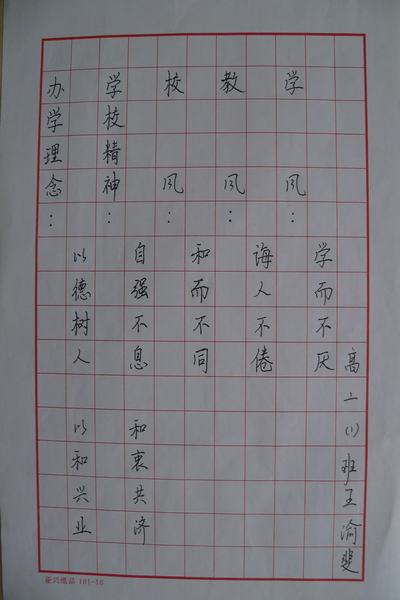 办学理念：
以德树人 以和兴业
学校精神：
自强不息 和衷共济
校风：
和而不同
教风：
诲人不倦
学风：
学而不厌
高二(1)班王渝斐
101-16